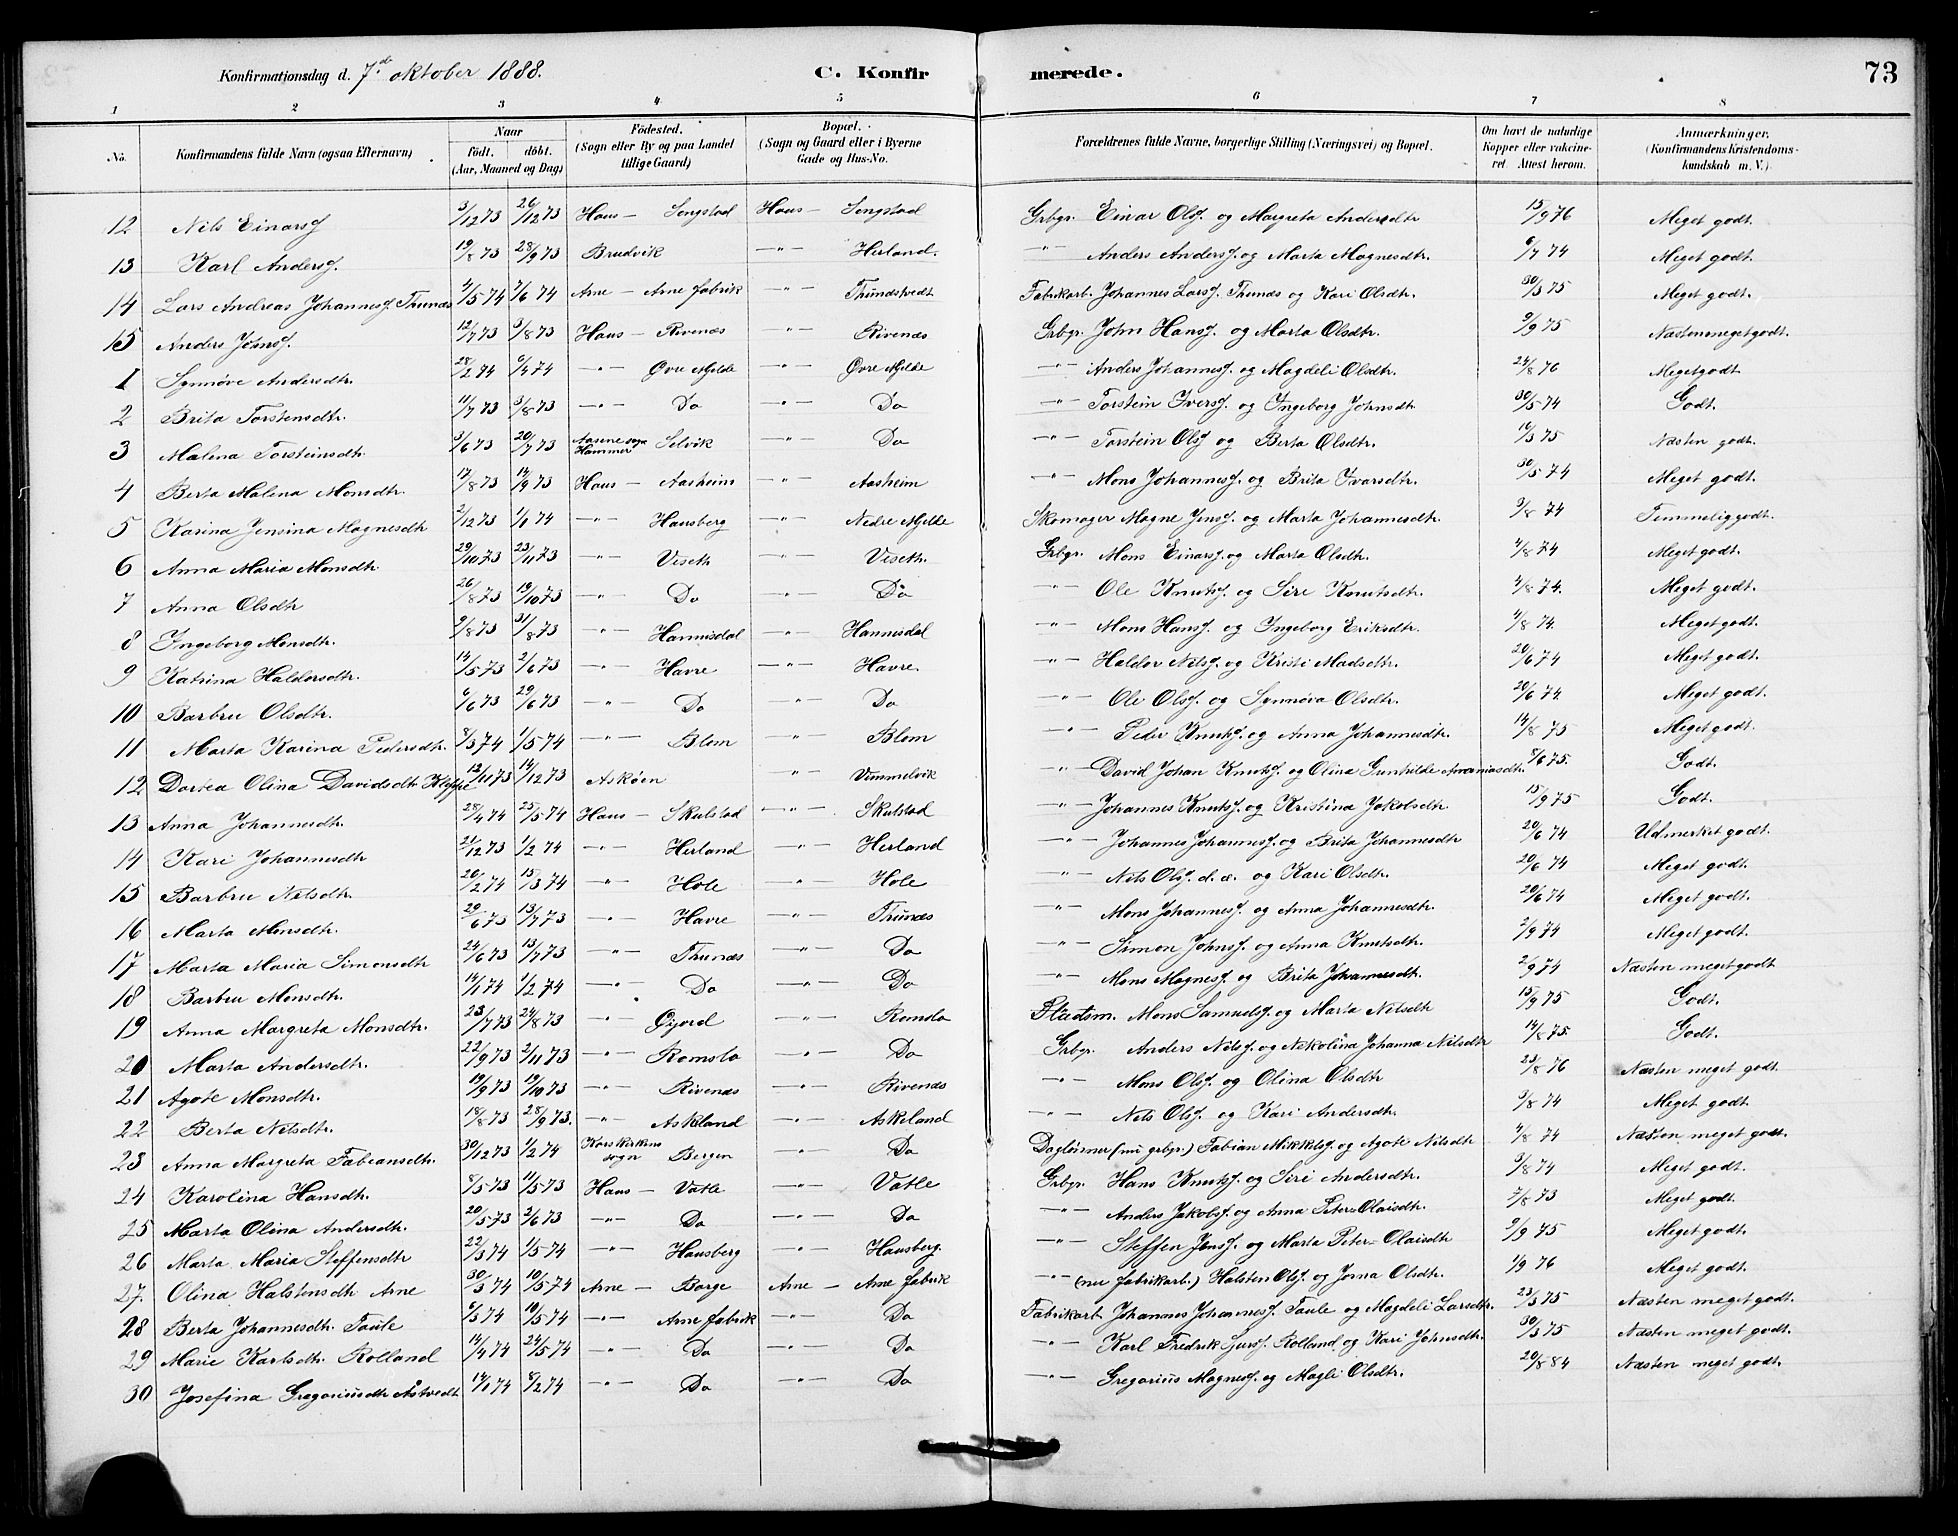 Konfirmationsdag d. 7de oktober 1888. C. Konfirmerede. 73
1 2 3 4 5 6 7 8
No. Konfirmandens fulde Navn (ogsaa Efternavn) Naar födt. döbt. (Aar, Maaned og Dag) Födested. (Sogn eller By og paa Landet tillige Gaard) Bopæl. (Sogn og Gaard eller i Byerne Gade og Hus-No. Forældrenes fulde Navne, borgerlige Stilling (Næringsvei) og Bopæl. Om havt de naturlige Kopper eller vakcineret. Attest herom. Anmærkninger, (Konfirmandens Kristendomskundskab m. V.)
12 Nils Einarsf 3/12 73 26/12 73 Haus — Songstad Haus — Songstad Grbgr. Einar Olsf. og Margreta Andersdtr 15/9 76 Meget godt.
13 Karl Andersf. 19/8 73 28/9 73 Brudvik —"— Herland. —"— Anders Andersf. og Marta Magnesdtr. 6/7 74 Meget godt.
14 Lars Andreas Johannesf. Thunæs 4/5 74 7/6 74 Arne — Arne fabrik —"— Thunestvedt Fabrikarb. Johannes Larsf. Thunæs og Kari Olsdtr. 30/3 75 Meget godt.
15 Anders Johnsf. 12/7 73 3/8 73 Haus — Rivenæs —"— Rivenæs Grbgr. John Hansf. og Marta Olsdtr. 2/9 75 Næsten meget godt.
1 Synnöve Andersdtr. 28/2 74 6/4 74 —"— Övre Mjelde —"— Övre Mjelde —"— Anders Johannesf. og Magdeli Olsdtr. 24/8 76 Meget godt
2 Brita Torstensdtr. 11/7 73 3/8 73 —"— Do —"— Do —"— Torstein Iversf. og Ingeborg Johnsdtr. 30/5 74 Godt.
3 Malena Torsteinsdtr. 3/6 73 20/7 73 Hammer Selvik —"— Do —"— Torstein Olsf og Berta Olsdtr. 16/3 75 Næsten godt.
4 Berta Malena Monsdtr. 17/8 73 14/9 73 Haus — Aasheim —"— Aasheim —"— Mons Johannesf. og Brita Ivarsdtr. 30/5 74 Meget godt.
5 Karina Jensina Magnesdtr 2/12 73 1/1 74 —"— Hausberg —"— Nedre Mjelde Skomager Magne Jensf. og Marta Johannesdtr. 3/8 74 Temmelig godt.
6 Anna Maria Monsdtr. 29/10 73 23/11 73 —"— Viseth —"— Viseth. Grbgr. Mons Einarsf. og Marta Olsdtr. 4/8 74 Meget godt.
7 Anna Olsdtr 26/8 73 19/10 73 —"— Do —"— Do —"— Ole Knutsf. og Siri Knutsdtr. 4/8 74. Meget godt.
8 Ingeborg Monsdtr. 2/8 73 31/8 73 —"— Hannisdal —"— Hannisdal —"— Mons Hansf. og Ingeborg Eriksdtr. 4/8 74. Meget godt.
9 Katrina Haldorsdtr. 14/5 73 2/6 73 —"— Havre —"— Havre. —"— Haldor Nilsf. og Kristi Madsdtr. 20/6 74 Meget godt.
10 Barbru Olsdtr. 6/6 73 29/6 73 —"— Do —"— Do —"— Ole Olsf. og Synnöva Olsdtr. 20/6 74. Meget godt.
11 Marta Karina Pedersdtr. 8/3 74 1/5 74 —"— Blom —"— Blom —"— Peder Knutsf. og Anna Johannesdtr. 14/8 75 Meget godt.
12 Dortea Olina Davidsdtr Kleppe 12/11 73 14/12 73 Asköen —"— Vimmelvik —"— David Johan Knutsf. og Olina Gunhilde Ananiasdtr. 8/6 75. Godt.
13 Anna Johannesdtr. 28/4 74 25/5 74 Haus — Skulstad —"— Skulstad —"— Johannes Knutsf. og Kristina Jakobsdtr 15/9 75 Godt.
14 Kari Johannesdtr 21/12 73 1/2 74 —"— Herland —"— Herland —"— Johannes Johannesf. og Brita Johannesdtr 20/6 74 Udmerket godt.
15 Barbru Nilsdtr. 20/2 74 15/3 74 —"— Hole —"— Hole —"— Nils Olsf. d. æ. og Kari Olsdtr. 20/6 74 Meget godt.
16 Marta Monsdtr. 29/6 73 13/7 73 —"— Havre —"— Thunæs —"— Mons Johannesf. og Anna Johannesdtr. 20/6 74 Meget godt.
17 Marta Maria Simonsdtr 24/6 73 13/7 73 —"— Thunæs —"— Do —"— Simon Johnsf. og Anna Knutsdtr. 2/9 74 Meget godt.
18 Barbru Monsdtr. 14/1 74 1/2 74 —"— Do —"— Do —"— Mons Magnesf. og Brita Johannesdtr. 2/9 74 Næsten meget godt
19 Anna Margreta Monsdtr. 23/7 73 24/8 73 —"— Gjord —"— Romslo Pladsm. Mons Samuelsf. og Marta Nilsdtr 15/9 75 Godt.
20 Marta Andersdtr. 22/9 73 2/11 73 —"— Romslo —"— Do Grbgr. Anders Nilsf. og Nikolina Johanna Nilsdtr 14/8 75. Godt.
21 Agote Monsdtr. 19/9 73 19/10 73 —"— Rivenæs —"— Rivenæs —"— Mons Olsf. og Olina Olsdtr 23/8 76 Næsten meget godt.
22 Berta Nilsdtr. 18/8 73 28/9 73. —"— Askeland —"— Askeland —"— Nils Olsf. og Kari Andersdtr. 3/8 74 Meget godt.
23 Anna Margreta Fabiansdtr. 30/12 73 1/2 74 Korskirkens sogn Bergen —"— Do Daglönner (nu grbgr.) Fabian Mikkelsf. og Agote Nilsdtr 4/8 74 Næsten meget godt.
24 Karolina Hansdtr. 8/5 73 11/5 73 Haus — Vatle —"— Vatle Grbgr. Hans Knutsf. og Siri Andersdtr. 3/8 74 Meget godt.
25 Marta Olina Andersdtr. 20/5 73 2/6 73 —"— Do —"— Do —"— Anders Jakobsf. og Anna Peter-Olaisdtr. 7/8 73 Meget godt.
26 Marta Maria Steffensdtr 22/3 74 1/5 74 —"— Hausberg —"— Hausberg. —"— Steffen Jensf. og Marta Peter-Olaisdtr 2/9 75 Meget godt.
27. Olina Halstensdtr Arne 30/3 74 10/5 74 Arne — Borge Arne — Arne fabrik —"— (nu fabrikarb.) Halsten Olsf. og Jorna Olsdtr. 1/9 76 Meget godt.
28 Berta Johannesdtr. Taule 6/3 74 10/5 74 —"— Arne fabrik —"— Do Fabrikarb. Johannes Johannesf. Taule og Magdeli Larsdtr. 23/3 75 Næsten meget godt.
29 Marie Karlsdtr. Rolland 14/4 74 24/5 74 —"— Do —"— Do —"— Karl Fredrik Sjursf. Rolland og Kari Johnsdtr. 30/3 75 Næsten meget godt.
30 Josefina Gregoriusdtr Åstvedt 14/1 74 8/2 74 —"— Do —"— Do —"— Gregorius Magnesf. og Magli Olsdtr. 20/8 84 Næsten meget godt.